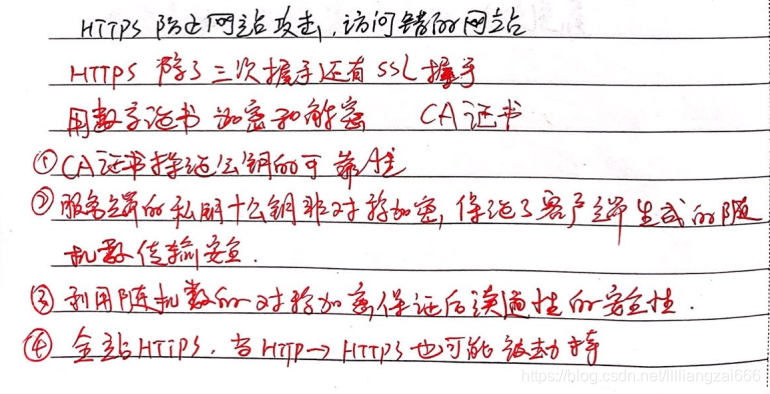 HTTPS 防止网站攻击,访问错的网站
HTTPS 除了三次握手还有 SSL 握手
用数字证书 加密和解密 CA证书
①CA证书保证公钥的可靠性
②服务端的私钥+公钥非对称加密,保证了客户端生成的随
机数传输安全.
③利用随机数的对称加密,保证后续通性的安全性.
④全站HTTPS.当HTTP→HTTPS也可能被劫持
https://blog.csdn.net/lililiangzai666